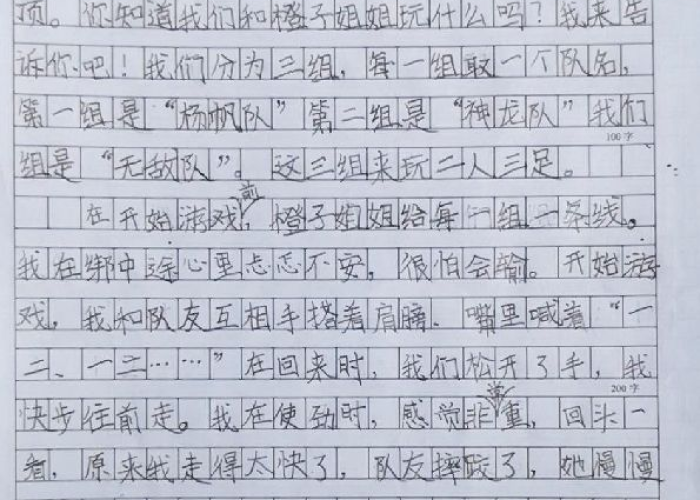 顶。你知道我们和橙子姐姐玩什么吗？我来告
诉你吧！我们分为三组，每一组取一个队名，
第一组是“杨帆队”第二组是“神龙队”我们
100字
组是“无敌队”。这三组来玩二人三足。
在开始游戏前，橙子姐姐给每一组一条线。
我在绑中途心里忐忑不安，很怕会输。开始游
戏，我和队友互相手搭着肩膀．嘴里喊着“一
二、一二……”在回来时，我们松开了手，我
200字
快步往前走。我在使劲时，感觉非常重，回头一
看，原来我走得太快了，队友摔跤了，她慢慢